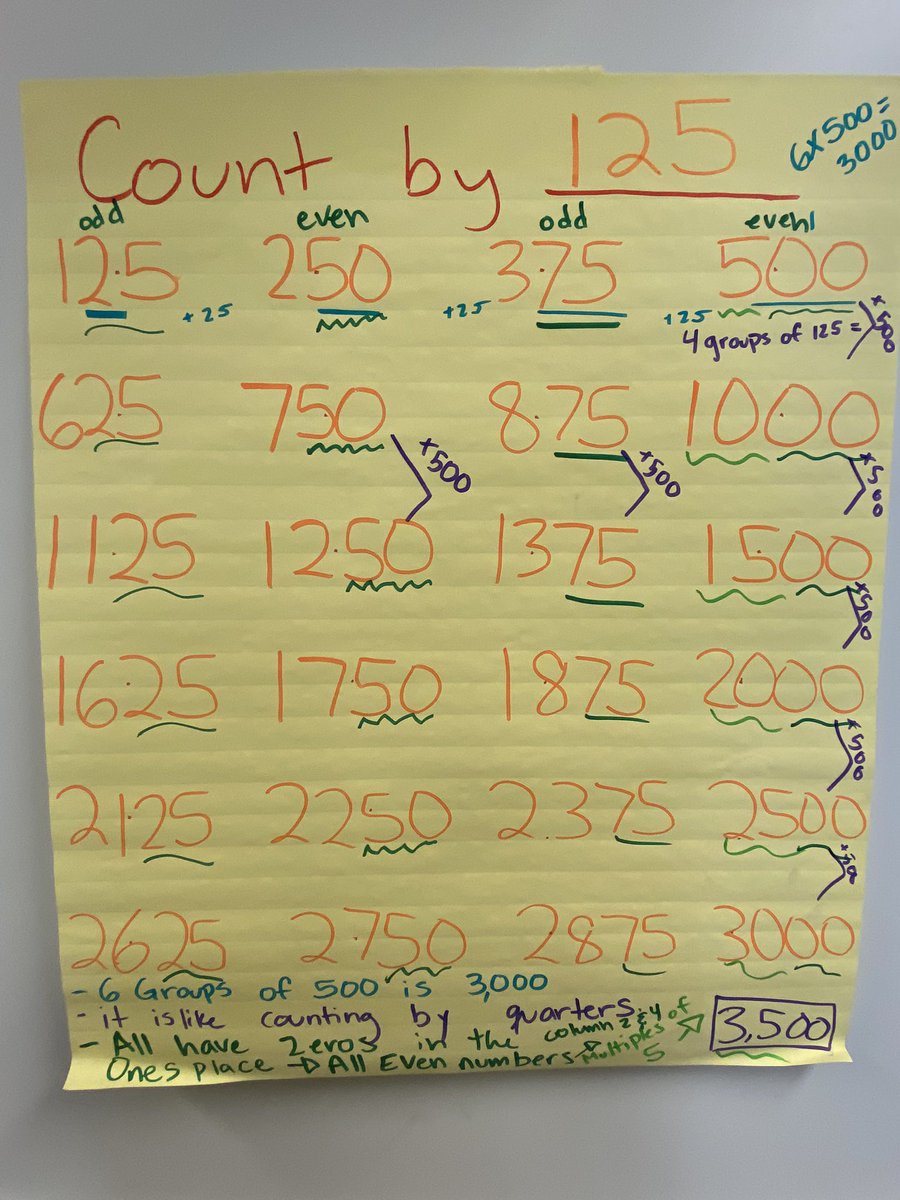 Count by 125
6x500=
3000
odd even odd even
125 250 375 500
+25 +25 +25
4 groups of 125 =
+500
625 750 875 1000
+500 +500 +500
1125 1250 1375 1500
+500
1625 1750 1875 2000
+500
2125 2250 2375 2500
2625 2750 2875 3000
- 6 Groups of 500 is 3,000
- it is like counting by quarters.
- All have Zeros in the column 2 & 4
Ones place → All Even numbers
Multiples of
5
3,500